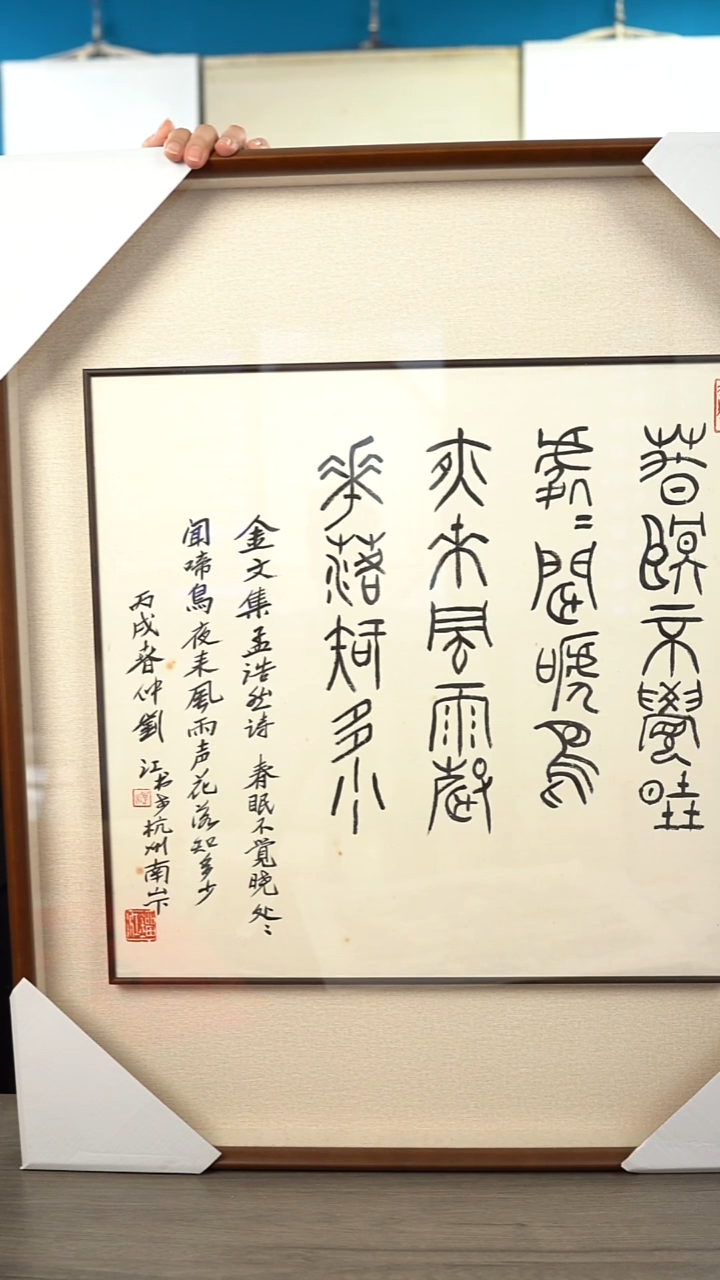 春眠不覺曉
處〻聞啼鳥
夜来風雨聲
華落知多少
金文集孟浩然诗 春眠不覺晓处〻
闻啼鳥夜来風雨声花落知多少
丙戌春仲劉江书于杭州南山下